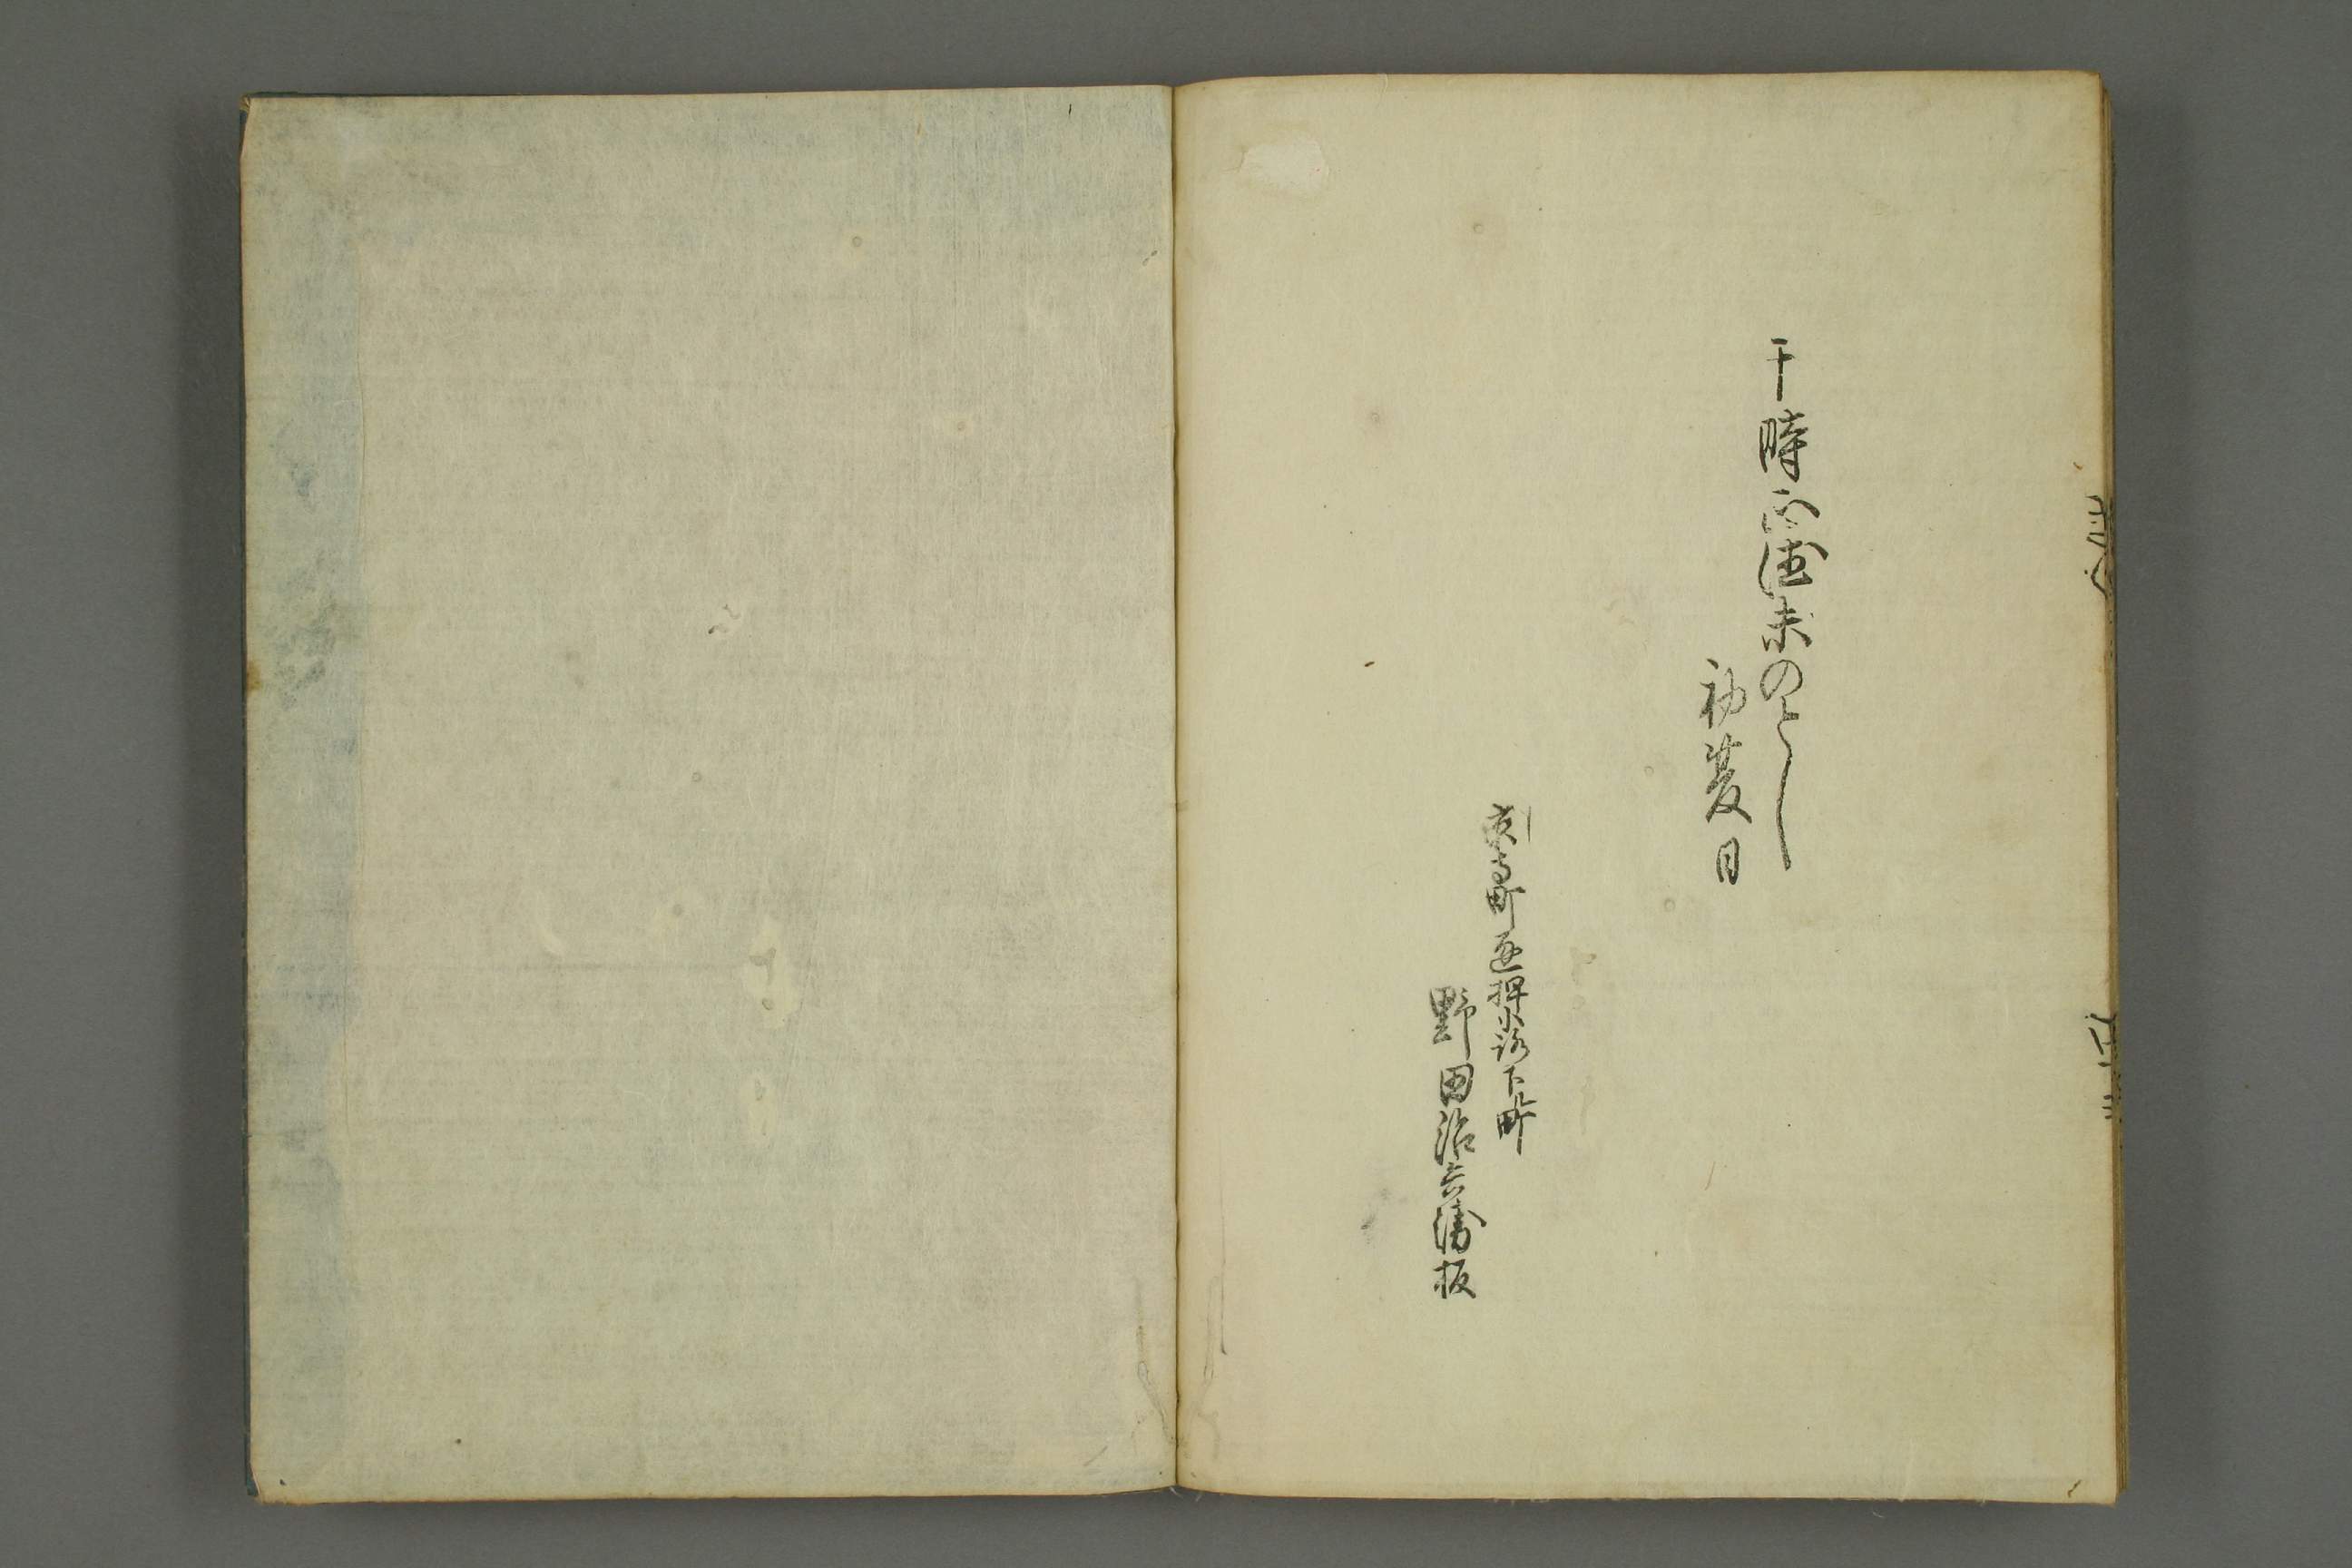 干時正徳未のとし
初夏日
京寺町通押小路下町
野田治兵衛板